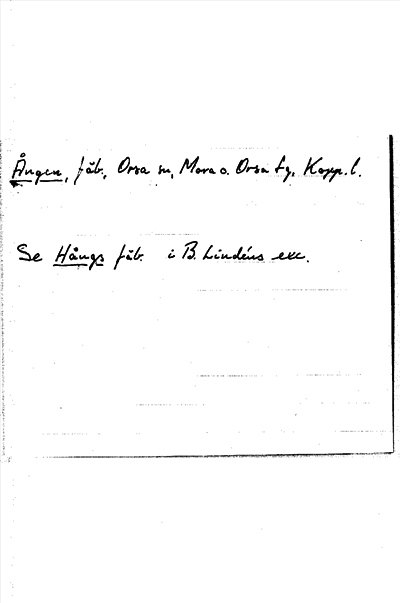 Ången, fäb., Orsa sn, Mora o. Orsa tg, Kopp. l.
Se Hångs fäb. i B. Lindéns exc.